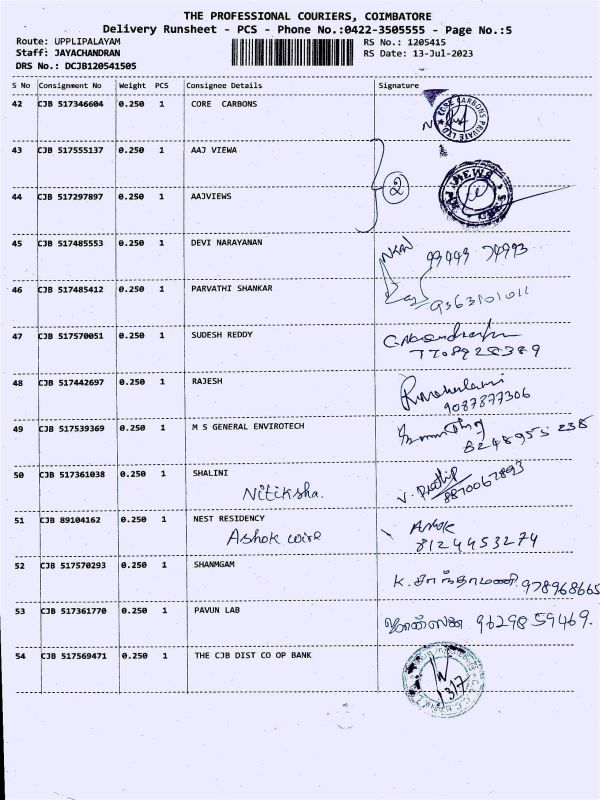 THE PROFESSIONAL COURIERS, COIMBATORE
Delivery Runsheet - PCS - Phone No.:0422-3505555 - Page No.:5
Route: UPPLIPALAYAM RS No.: 1205415
Staff: JAYACHANDRAN RS Date: 13-Jul-2023
DRS No.: DCJB120541505
S No Consignment No Weight PCS Consignee Details Signature
42 CJB 517346604 0.250 1 CORE CARBONS
43 CJB 517555137 0.250 1 AAJ VIEWA
2
44 CJB 517297897 0.250 1 AAJVIEWS
45 CJB 517485553 0.250 1 DEVI NARAYANAN
46 CJB 517485412 0.250 1 PARVATHI SHANKAR
9363101011
47 CJB 517570051 0.250 1 SUDESH REDDY
7708928389
48 CJB 517442697 0.250 1 RAJESH
9087877306
49 CJB 517539369 0.250 1 M S GENERAL ENVIROTECH
8248955 238
50 CJB 517361038 0.250 1 SHALINI
Nitiksha. V. Prathip
8870067893
51 CJB 89104162 0.250 1 NEST RESIDENCY Ashok
Ashok wire 8124453274
52 CJB 517570293 0.250 1 SHANMGAM
K. சாந்தாமணி 978968665
53 CJB 517361770 0.250 1 PAVUN LAB
9629859469.
54 CJB 517569471 0.250 1 THE CJB DIST CO OP BANK
1317